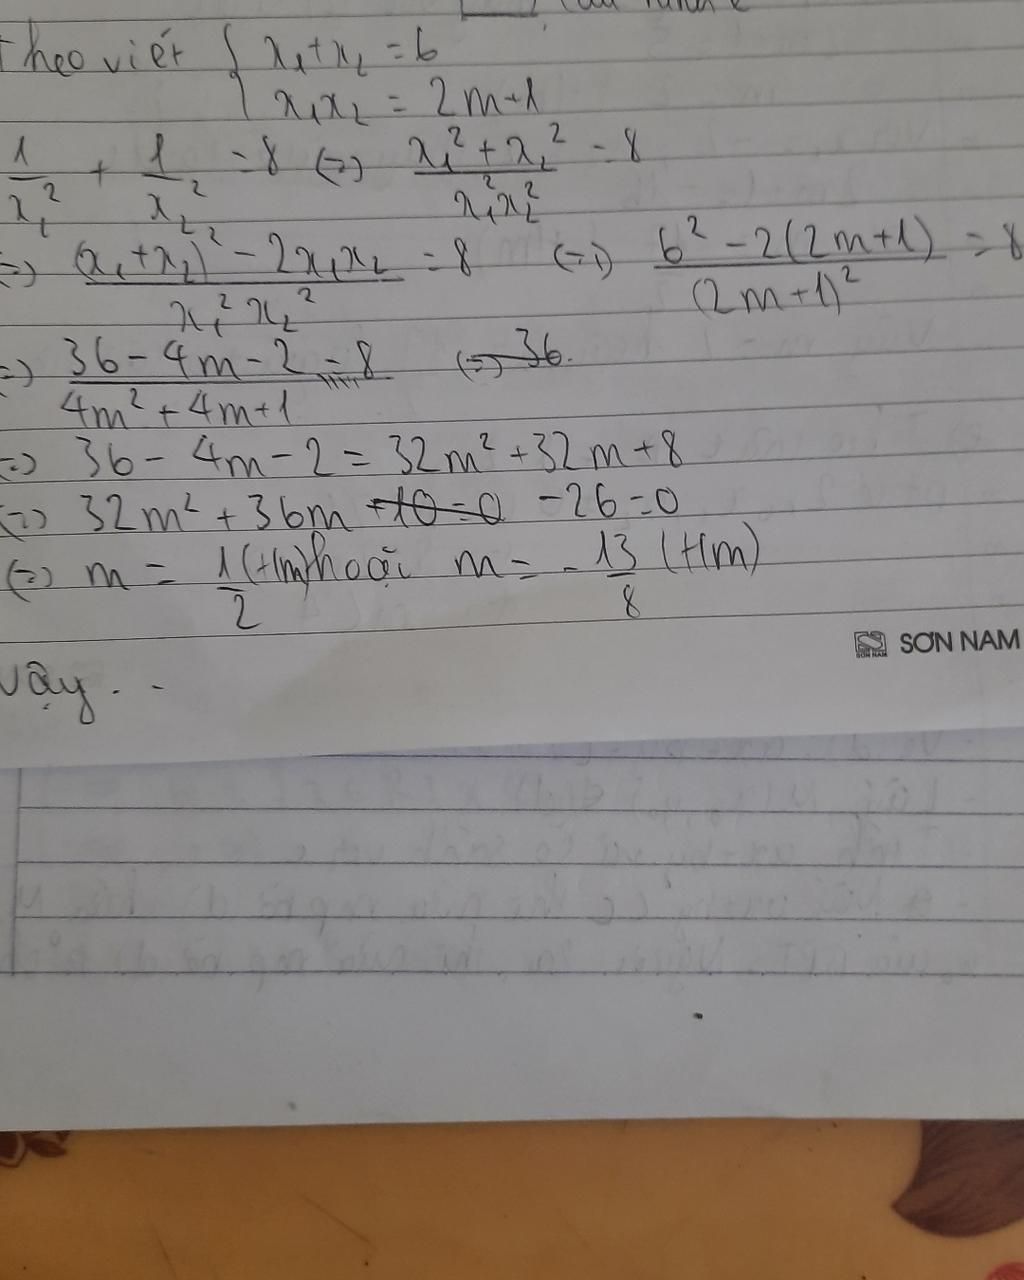 Theo viét { x₁+x₂ = 6
x₁x₂ = 2m+1
1/x₁² + 1/x₂² = 8 (=) (x₁²+x₂²)/(x₁²x₂²) = 8
(=) ((x₁+x₂)² - 2x₁x₂)/(x₁²x₂²) = 8 (=) (6² - 2(2m+1))/(2m+1)² = 8
(=) (36 - 4m - 2)/(4m² + 4m + 1) = 8
(=) 36 - 4m - 2 = 32m² + 32m + 8
(=) 32m² + 36m - 26 = 0
(=) m = 1/2 (t/m) hoặc m = -13/8 (t/m)
SƠN NAM
Vậy . . -